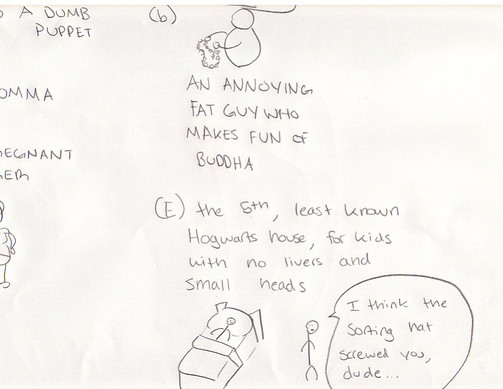 A DUMB
PUPPET
OMMA
EGNANT
(b)
AN ANNOYING
FAT GUY WHO
MAKES FUN OF
BUDDHA
(E) the 5th, least known
Hogwarts house, for kids
with no livers and
small heads
I think the
sorting hat
screwed you,
dude...